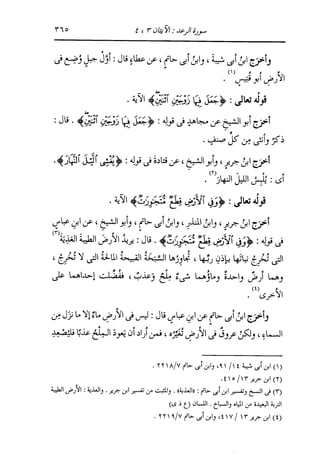 سورة الرعد : الآيتان ٣ ، ٤
٣٦٥
وأخرج ابنُ أبى شيبةَ ، وابنُ أبى حاتمٍ ، عن عطاءٍ قال : أوّلُ جبلٍ وُضِع فى
الأرضِ أبو قُبَيْسٍ (١) .
قولُه تعالى : ﴿جَعَلَ فِيهَا زَوْجَيْنِ اثْنَيْنِ﴾ الآية .
أخرج أبو الشيخِ عن مجاهدٍ فى قولِه : ﴿جَعَلَ فِيهَا زَوْجَيْنِ اثْنَيْنِ﴾ . قال :
ذكرٌ وأنثى مِن كلِّ صنفٍ .
أخرج ابنُ جريرٍ ، وأبو الشيخِ ، عن قتادةَ فى قولِه : ﴿يُغْشِى الَّيْلَ النَّهَارَ﴾ .
أى : يُلْبِسُ الليلَ النهارَ (٢) .
قولُه تعالى : ﴿وَفِى الْأَرْضِ قِطَعٌ مُّتَجَاوِرَاتٌ﴾ الآية .
أخرج ابنُ جريرٍ ، وابنُ المنذرِ ، وابنُ أبى حاتمٍ ، وأبو الشيخِ ، عن ابنِ عباسٍ
فى قولِه : ﴿وَفِى الْأَرْضِ قِطَعٌ مُّتَجَاوِرَاتٌ﴾ . قال : يريدُ الأرضَ الطيبةَ العَذِيَّةَ (٣)
التى تُخْرِجُ نباتَها بإذنِ ربِّها ، تُجاوِرُها السَّبَخةُ القبيحةُ المالحةُ التى لا تُخْرِجُ ،
وهما أرضٌ واحدةٌ وماؤُهما شىءٌ مِلْحٌ وعَذْبٌ ، ففُضِّلت إحداهما على
الأخرى (٤) .
وأخرج ابنُ أبى حاتمٍ عن ابنِ عباسٍ قال : ليس فى الأرضِ ماءٌ إلا ما نزَل مِن
السماءِ ، ولكن عروقٌ فى الأرضِ تُغَيِّرُه ، فمن أراد أن يعودَ الملحُ عذبًا فليُصْعِدِ
(١) ابن أبى شيبة ١٤/ ٩١، وابن أبى حاتم ٧/ ٢٢١٨.
(٢) ابن جرير ١٣/ ٤١٥.
(٣) فى النسخ وتفسير ابن أبى حاتم : «العذبة» . والمثبت من تفسير ابن جرير . والعذية : الأرض الطيبة
التربة البعيدة من المياه والسباخ . اللسان (ع ذ ى)
(٤) ابن جرير ١٣/ ٤١٧، وابن أبى حاتم ٧/ ٢٢١٩.